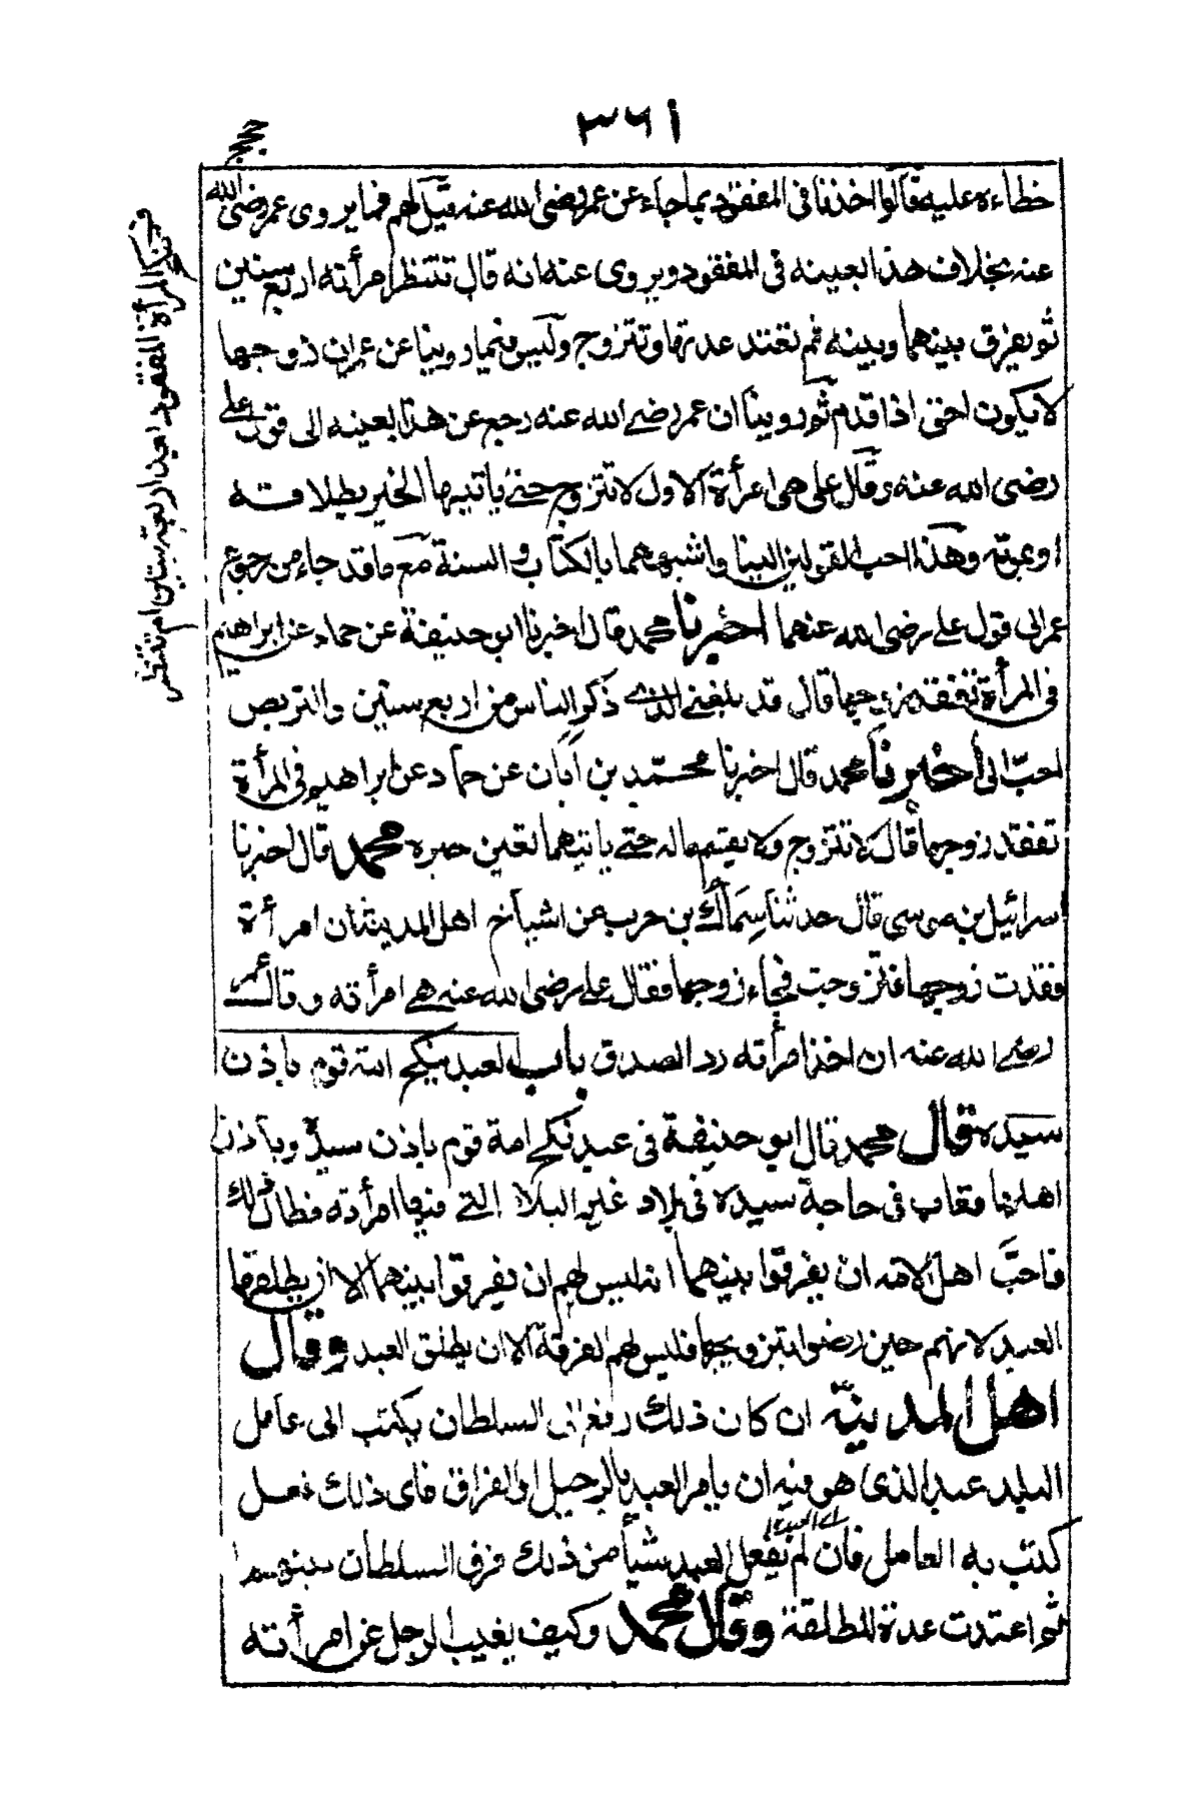 ٣٦١
خطاءه عليه قالوا اخذنا فى المفقود بما جاء عن عمر رضى الله عنه قيل لهم فما يروى عمر رضى الله
عنه بخلاف هذا بعينه فى المفقود ويروى عنه انه قال تنتظر امرأته اربع سنين
ثم يفرق بينهما وبينه ثم تعتد عدتها وتتزوج وليس فيما روينا عن عمر ان زوجها
لا يكون احق اذا قدم ثم روينا ان عمر رضى الله عنه رجع عن هذا بعينه الى قول على
رضى الله عنه وقال على هى امرأة الاول لا تتزوج حتى ياتيها الخبر بطلاقه
او بموته وهذا احب القولين الينا واشبههما بالكتاب والسنة مع ما قد جاء من رجوع
عمر الى قول على رضى الله عنهما اخبرنا محمد قال اخبرنا ابو حنيفة عن حماد عن ابراهيم
فى المرأة تفقد زوجها قال قد بلغنى الذى ذكر الناس من اربع سنين والتربص
احب الى اخبرنا محمد قال اخبرنا محمد بن ابان عن حماد عن ابراهيم فى المرأة
تفقد زوجها قال لا تتزوج ولا يقسم ماله حتى ياتيهما يقين خبره محمد قال اخبرنا
اسرائيل بن موسى قال حدثنا سماك بن حرب عن اشياخ اهل المدينة ان امرأة
فقدت زوجها فتزوجت فجاء زوجها فقال على رضى الله عنه هى امرأته وقال عمر
رضى الله عنه ان اخذ امرأته رد الصدق باب العبد ينكح امة قوم باذن
سيده قال محمد قال ابو حنيفة فى عبد نكح امة قوم باذن سيده وباذن
اهلها فغاب فى حاجة سيده فى بلاد غير البلاد التى فيها امرأته فطال ذلك
فاحب اهل الامة ان يفرقوا بينهما انه ليس لهم ان يفرقوا بينهما الا ان يطلقها
العبد لانهم حين رضوا بتزويجها فليس لهم الفرقة الا ان يطلق العبد وقال
اهل المدينة ان كان ذلك رفع الى السلطان يكتب الى عامل
البلد عبد الذى هو فيه ان يامر العبد بالرحيل او الفراق فاى ذلك فعل
كتب به العامل فان لم يفعل العبد شيأ من ذلك فرق السلطان بينهما
ثم اعتدت عدة المطلقة وقال محمد وكيف يغيب الرجل عن امرأته
المرأة المفقود بعد اربعة سنين ام تنتظر